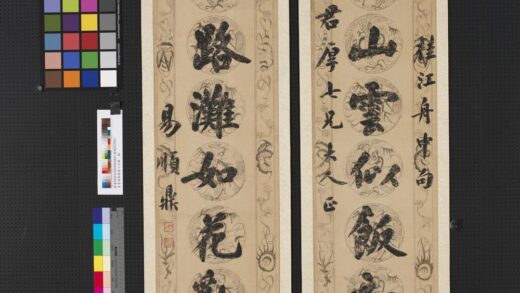 桂江舟中句
山雲似飯
君厚七兄大人正
路灘如花
易順鼎